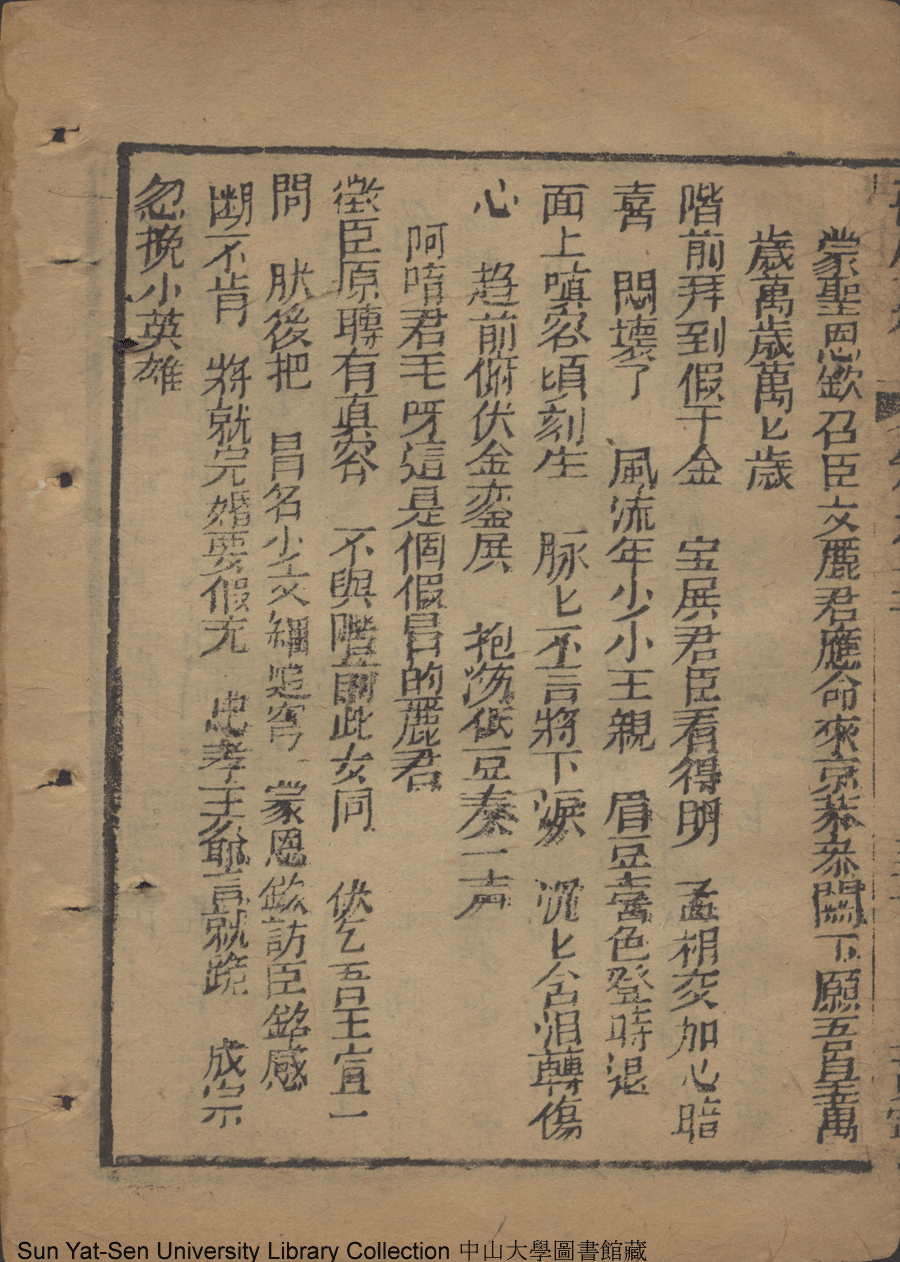 蒙聖恩欽召臣文麗君應命來京恭叅闕下願吾皇萬
歲萬歲萬匕歲
階前拜到假千金　宝展君臣看得明　孟相交加心暗
喜　悶壞了　風流年少小王親　眉豆喜色登時退
面上嗔容頃刻生　脉匕不言將下淚　沉匕含泪轉傷
心　趋前俯伏金鑾展　抱笏低豆奏一声
阿唷君毛呀這是個假冒的麗君
徵臣原聘有真容　不與階前此女同　伏乞吾王宣一
問　肰後把　冒名少女細追窮　蒙恩欽訪臣銘感
断不肯　將就完婚要假充　忠孝王爺言就跪　成宗
忽挽小英雄
Sun Yat-Sen University Library Collection 中山大學圖書館藏